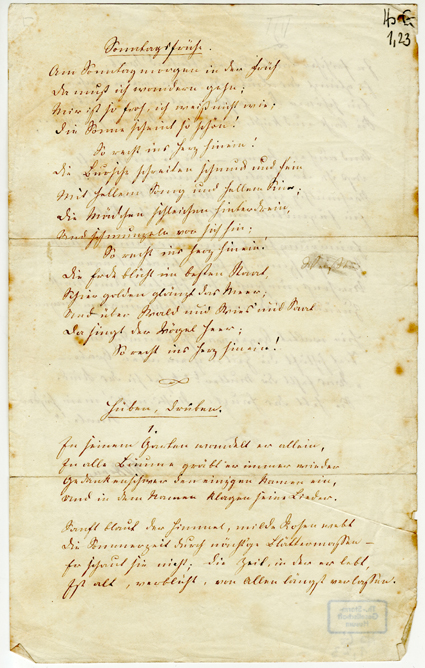 Hs E
1,23
Sonntagsfrühe.
Am Sonntagmorgen in der Früh
Da muß ich wandern gehn;
Mir ist so froh, ich weiß nicht wie;
Die Sonne scheint so schön!
So recht ins Herz hinein!
Die Bursche schreiten schmuck und fein
Mit hellem Sang und hellem
Die Mädchen schleichen hinterdrein,
Und schmunzeln vor sich hin;
So recht ins Herz hinein.
Die Erde blickt im besten Staat,
Schier golden glänzt das Meer;
Und über Wald und Wies und Saat
Da singt der Vögel Heer;
So recht ins Herz hinein!
Hüben, Drüben.
1.
In seinem Garten wandelt er allein,
In alle Bäume gräbt er immer wieder
Gedankenschwer den einzgen Namen ein,
Und in dem Namen klagen seine Lieder.
Sanft blaut der Himmel, milde Rosen webt
Die Sommerzeit durch mächtige Blättermassen –
Er schaut sie nicht; die Zeit, in der er lebt,
Ist alt, verblüht, von Allen längst verlassen.